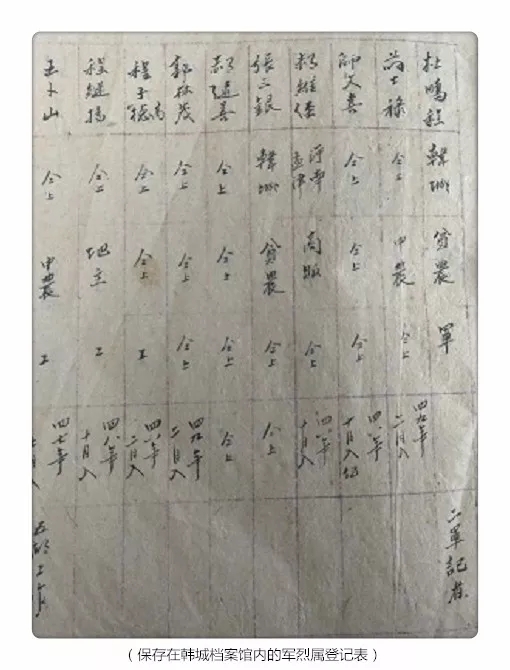 杜鵬程 韓城 貧農 軍 二軍記者
士禄 仝上 中農 仝上 四九年二月入
師文喜 仝上 仝上 仝上 四八年十月入伍
維 孟津 商販 仝上 四八年十月入
張三銀 韓城 貧農 仝上 仝上
善 仝上 仝上 仝上 仝上
郭林茂 仝上 仝上 仝上 四九年二月入
程 仝上 仝上 工 四八年二月入
程繼揚 仝上 地主 工 四八年十月入
王卜山 仝上 中農 工 四七年 月入 工作
（保存在韩城档案馆内的军烈属登记表）